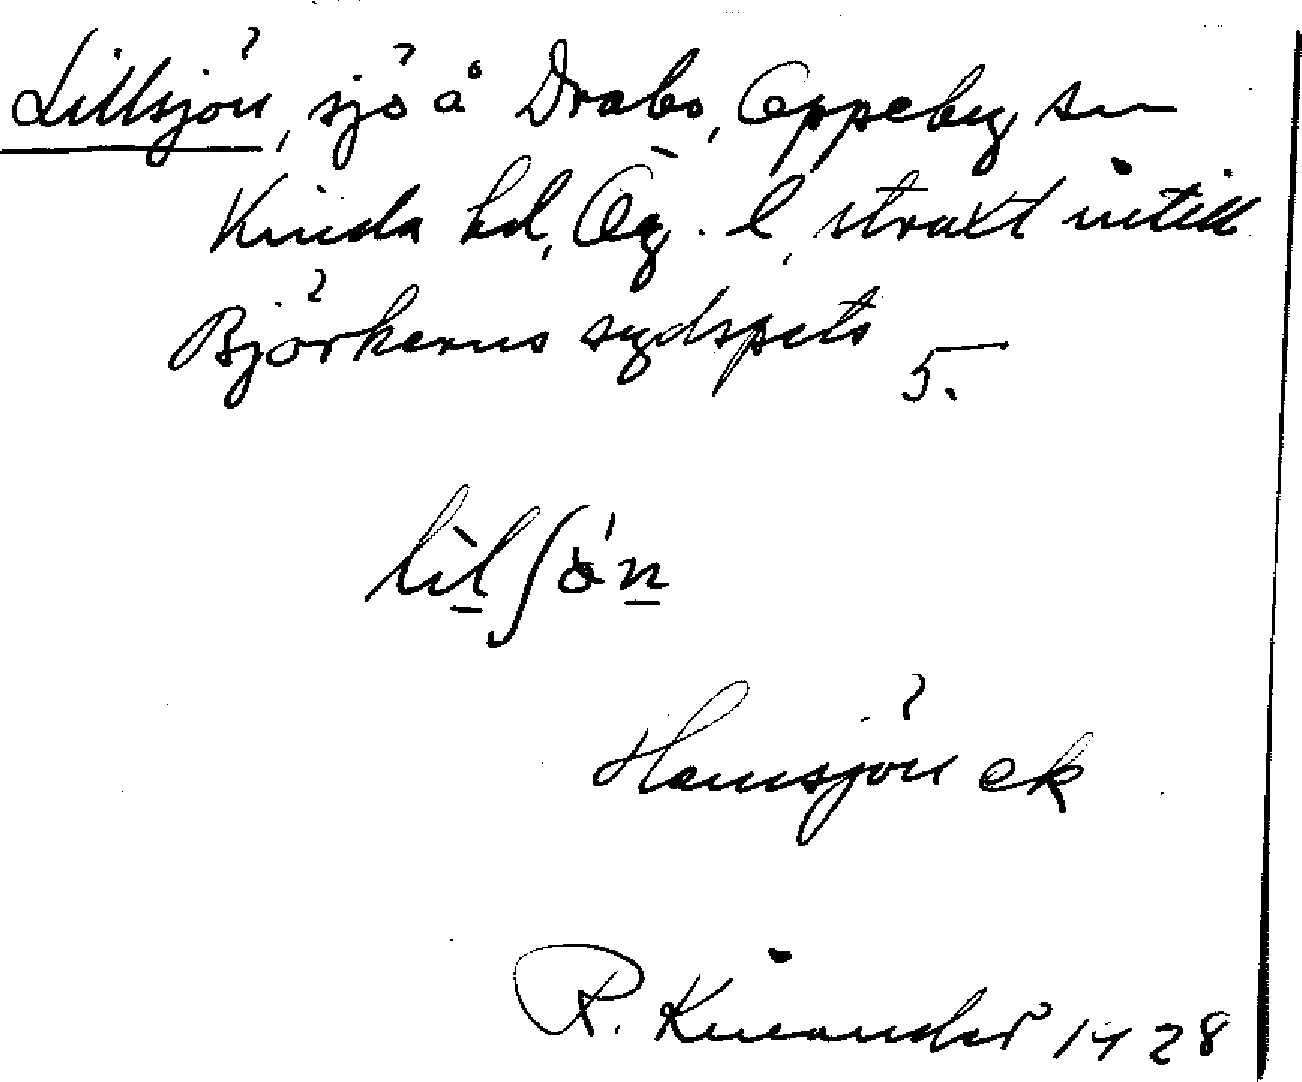 Lillsjön, sjö å Drabo, Oppeby sn
Kinda hd, Ög. l, straxt intill
Björkerns sydspets 5.
lìlʃớn
Hemsjön ek
R. Kinander 1928